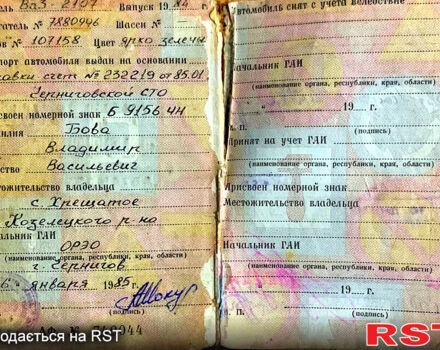 дель Ваз-2107 Выпуск 1984 г.
гатель № 7880946 Шасси № —
ов № 107158 Цвет ярко зелены
порт автомобиля выдан на основании
равки счет № 232219 от 85.01.
Черниговской СТО
своен номерной знак Б 9156 ЧН
милия Бова
Владимир
ство Васильевич
тожительство владельца
с. Хрещатое
Козелецкого р-на
чальник ГАИ
ОРЭО
(наименование органа, республики, края, области)
г. Чернигов
6. января 1985 г.
(подпись)
944
Автомобиль снят с учета вследствие
Начальник ГАИ
(наименование органа, республики, края, области)
19 г.
п. (подпись)
Принят на учет ГАИ
(наименование органа, республики, края, области)
Присвоен номерной знак
Местожительство владельца
Начальник ГАИ
(наименование органа, республики, края, области)
19 г.
п. (подпись)
одається на RST
RST